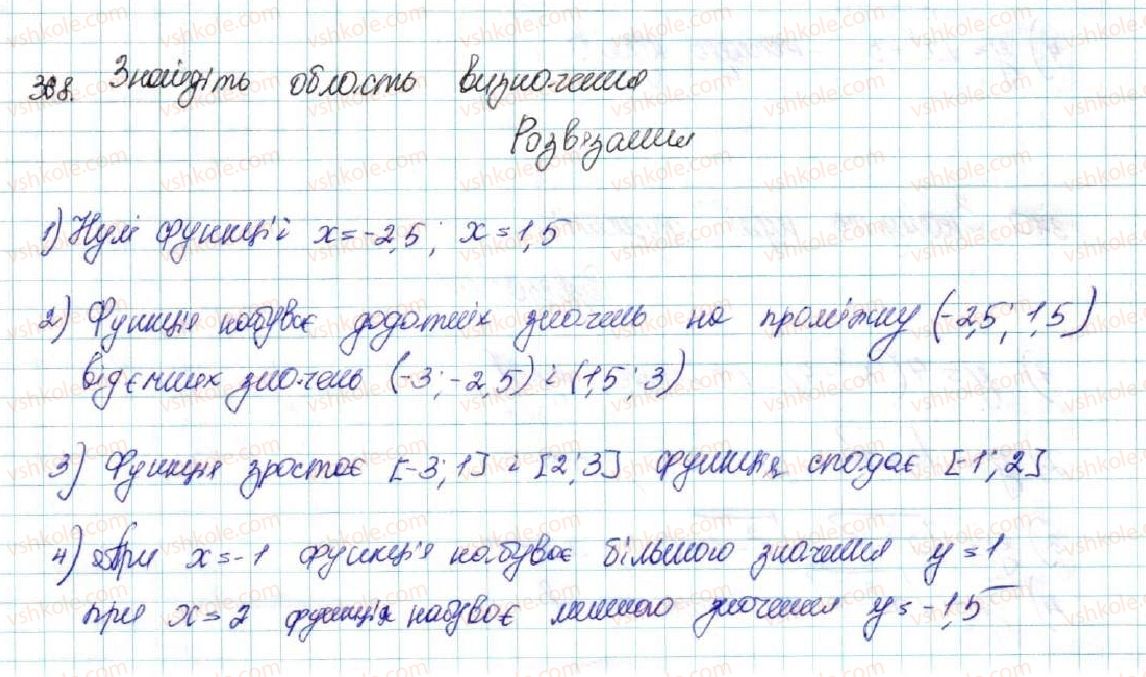 368. Знайдіть область визначення
Розв'язання
1) Нулі функції x=-2,5; x=1,5
2) Функція набуває додатніх значень на проміжку (-2,5; 1,5)
від'ємних значень (-3; -2,5) і (1,5; 3)
3) Функція зростає [-3; 1] і [2; 3] функція спадає [-1; 2]
4) При x=-1 функція набуває більшого значення y=1
при x=2 функція набуває меншого значення y=-1,5